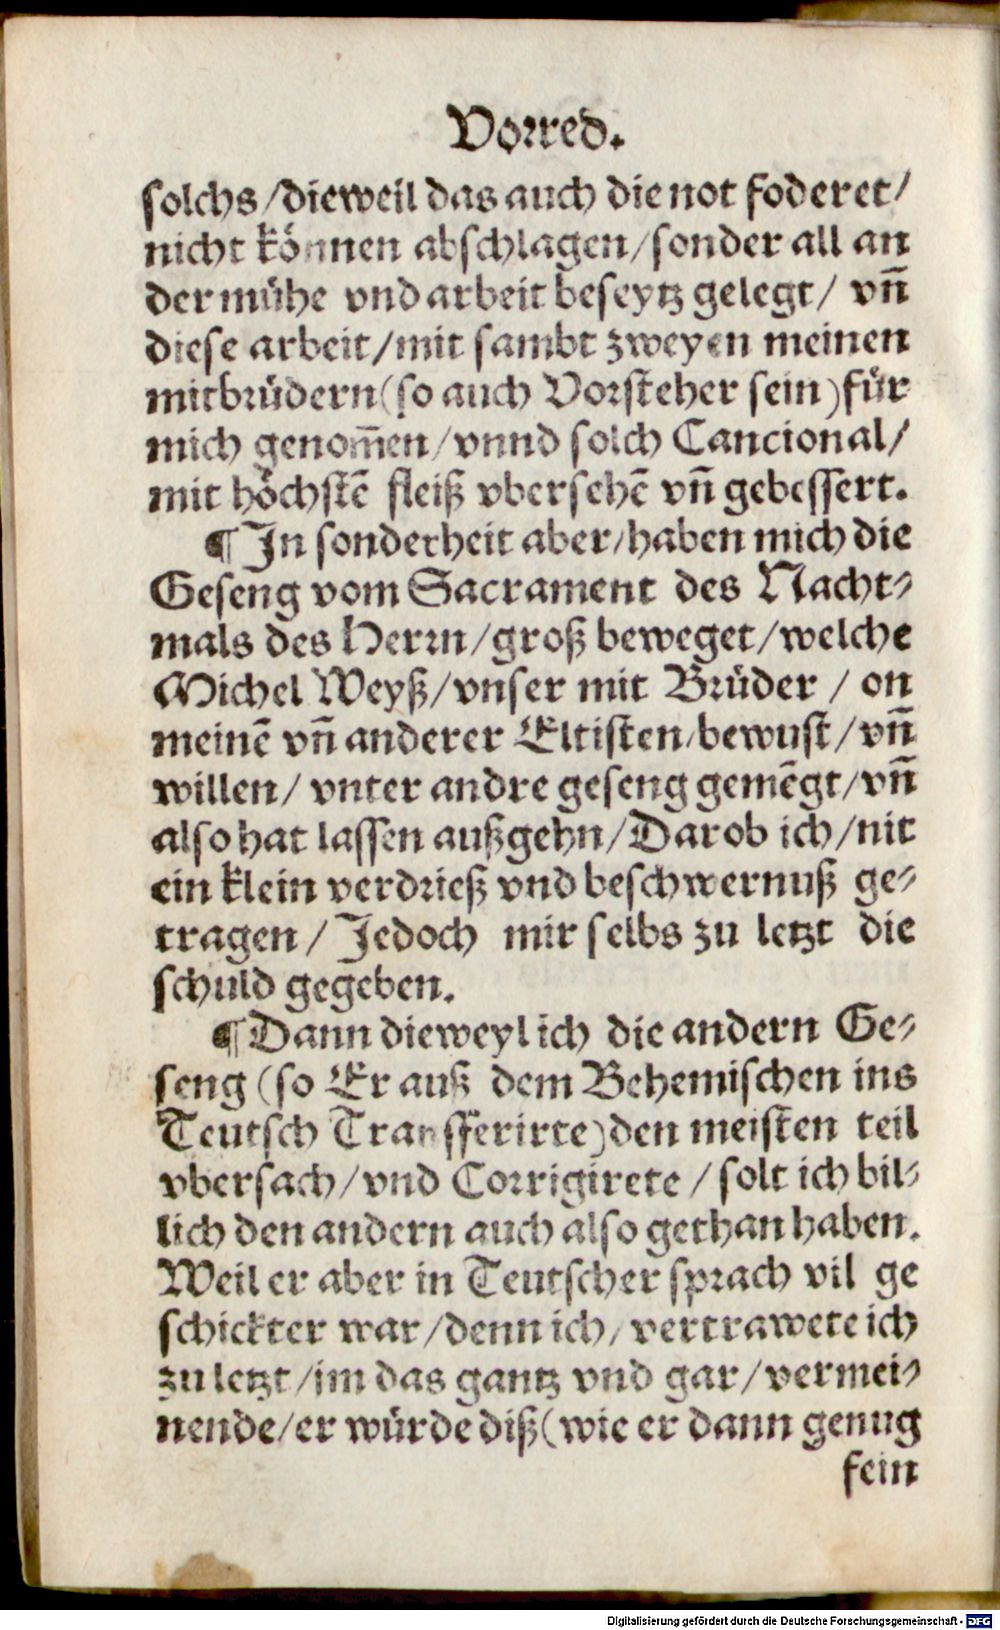 Vorred.
solchs/dieweil das auch die not foderet/
nicht können abschlagen/sonder all an
der mühe vnd arbeit beseytz gelegt/ vn̄
diese arbeit/mit sambt zweyen meinen
mitbrüdern(so auch Vorsteher sein)für
mich genom̄en/vnnd solch Cancional/
mit höchstē fleiß vbersehē vn̄ gebessert.
¶ In sonderheit aber/haben mich die
Geseng vom Sacrament des Nacht⸗
mals des Herrn/groß beweget/welche
Michel Weyß/vnser mit Brüder / on
meinē vn̄ anderer Eltisten/bewust/vn̄
willen/ vnter andre geseng gemēgt/vn̄
also hat lassen außgehn/Darob ich/nit
ein klein verdrieß vnd beschwernuß ge⸗
tragen/ Jedoch mir selbs zu letzt die
schuld gegeben.
¶ Dann dieweyl ich die andern Ge⸗
seng (so Er auß dem Behemischen ins
Teutsch Transfferirte)den meisten teil
vbersach/vnd Corrigirete/solt ich bil⸗
lich den andern auch also gethan haben.
Weil er aber in Teutscher sprach vil ge
schickter war/denn ich/vertrawete ich
zu letzt/im das gantz vnd gar/vermei⸗
nende/er würde diß(wie er dann genug
fein
Digitalisierung gefördert durch die Deutsche Forschungsgemeinschaft - DFG